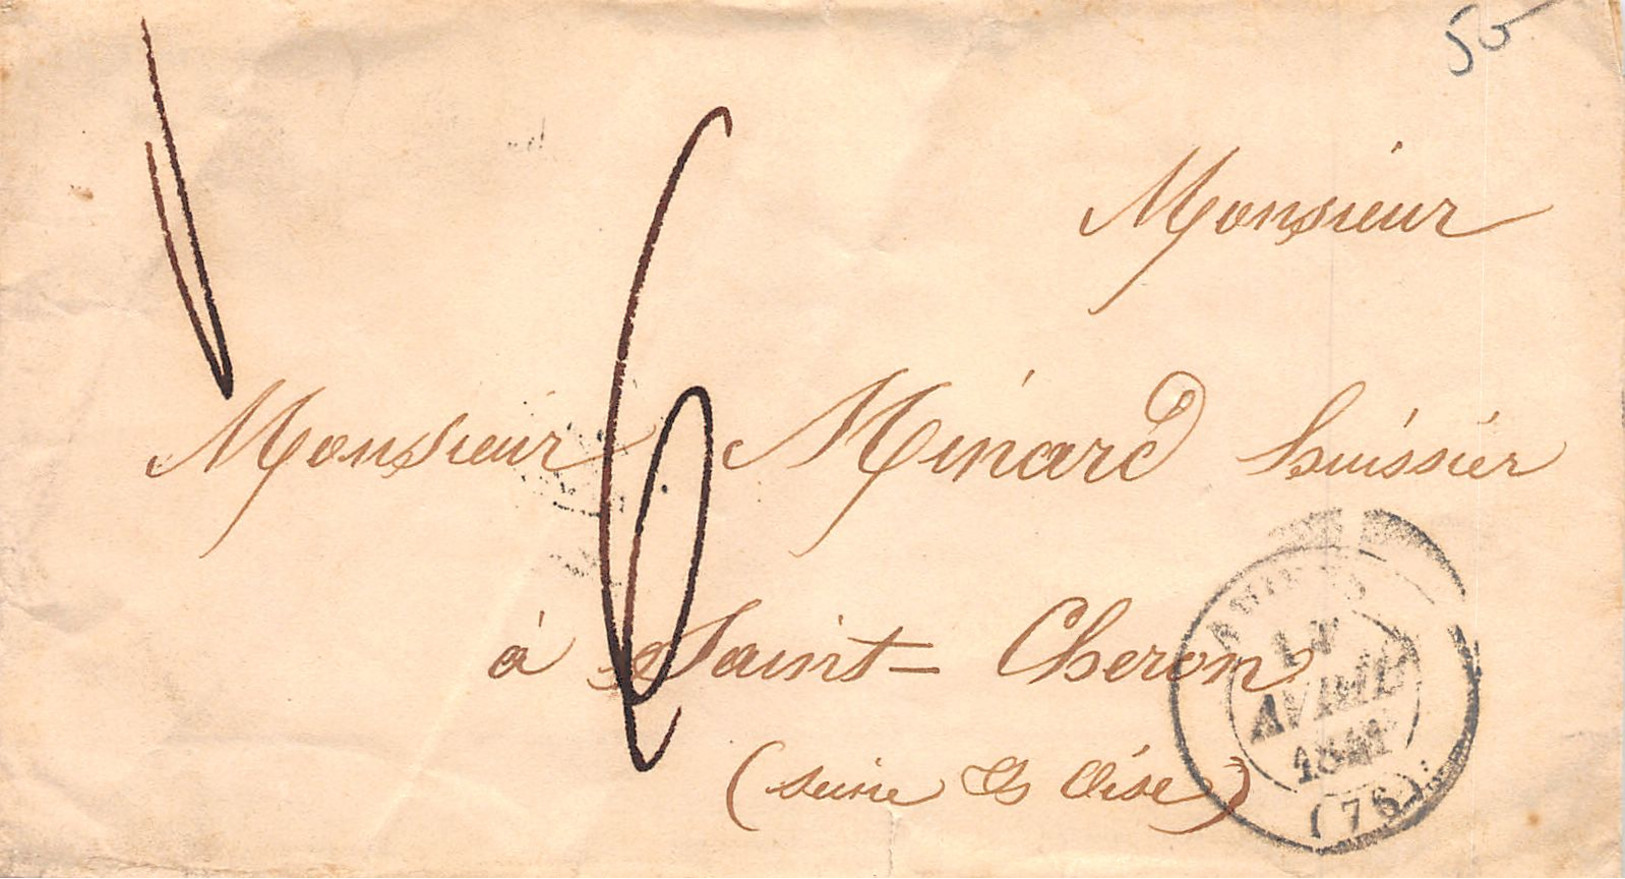 50
Monsieur
6
Monsieur Minard huissier
à Saint-Cheron
(seine & Oise)
17
AVRIL
(76)